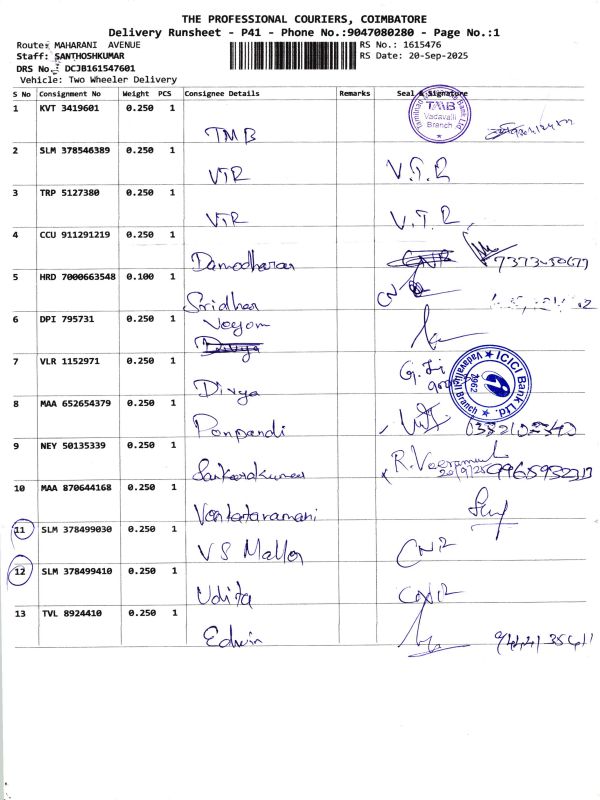 THE PROFESSIONAL COURIERS, COIMBATORE
Delivery Runsheet - P41 - Phone No.:9047080280 - Page No.:1
Route: MAHARANI AVENUE
RS No.: 1615476
Staff: SANTHOSHKUMAR
RS Date: 20-Sep-2025
DRS No.: DCJB161547601
Vehicle: Two Wheeler Delivery
S No Consignment No Weight PCS Consignee Details Remarks Seal & Signature
1 KVT 3419601 0.250 1
TMB
TMB Vadavalli Branch
2 SLM 378546389 0.250 1
VTR V.T.R
3 TRP 5127380 0.250 1
VTR V.T.R
4 CCU 911291219 0.250 1
Damodharan CNR
5 HRD 7000663548 0.100 1
Sridhar
6 DPI 795731 0.250 1
Divya
7 VLR 1152971 0.250 1
Divya
ICICI Bank Ltd. Vadavalli Branch
8 MAA 652654379 0.250 1
Ponpandi
9 NEY 50135339 0.250 1
20/9/25
10 MAA 870644168 0.250 1
Venkataramani
11 SLM 378499030 0.250 1
V S CNR
12 SLM 378499410 0.250 1
Udita CNR
13 TVL 8924410 0.250 1
Edwin